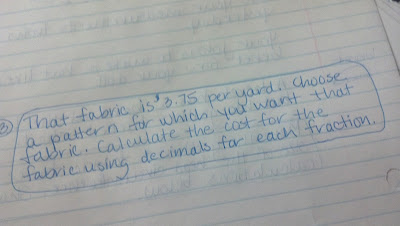 3
That fabric is $3.75 per yard. Choose
a pattern for which you want that
fabric. Calculate the cost for the
fabric using decimals for each fraction.